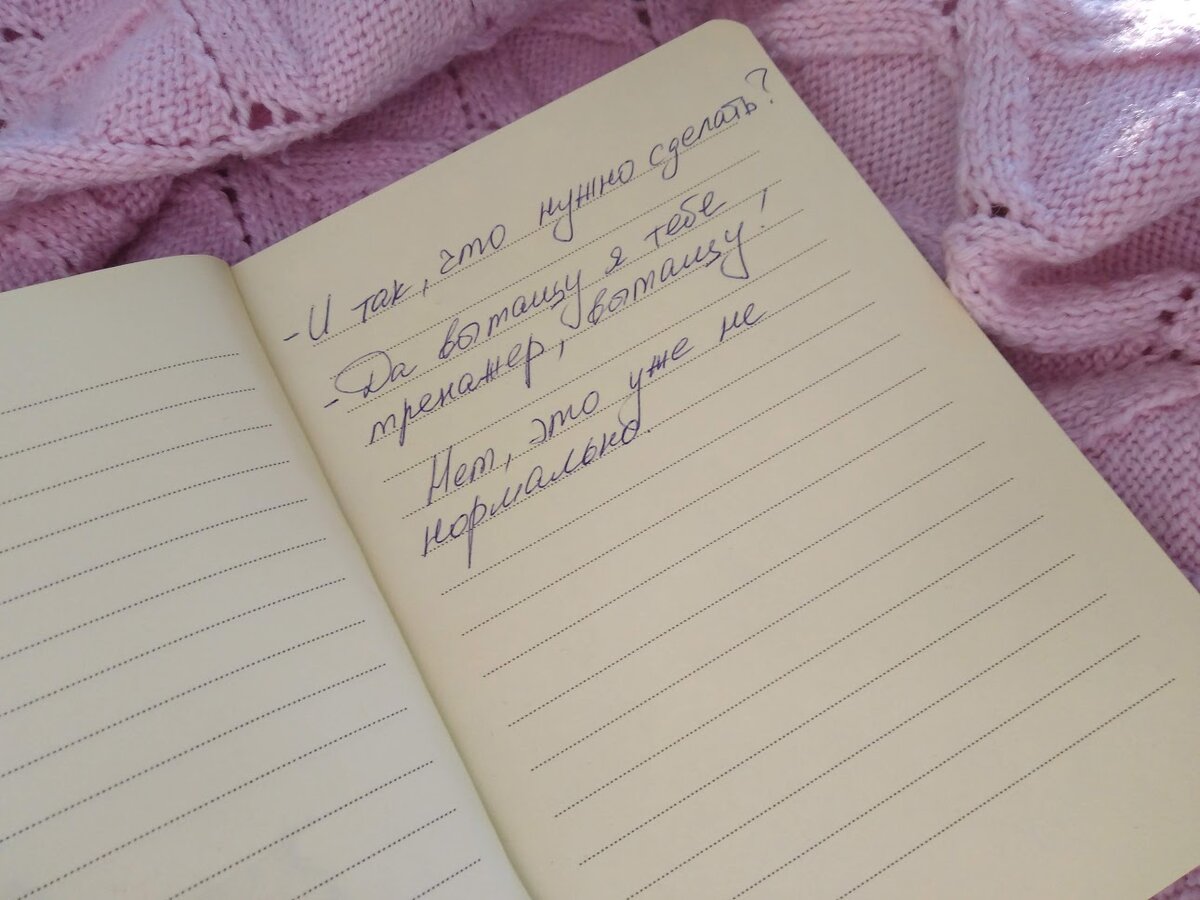 - И так, что нужно сделать?
- Да вытащу я тебе
тренажер, вытащу!
Нет, это уже не
нормально